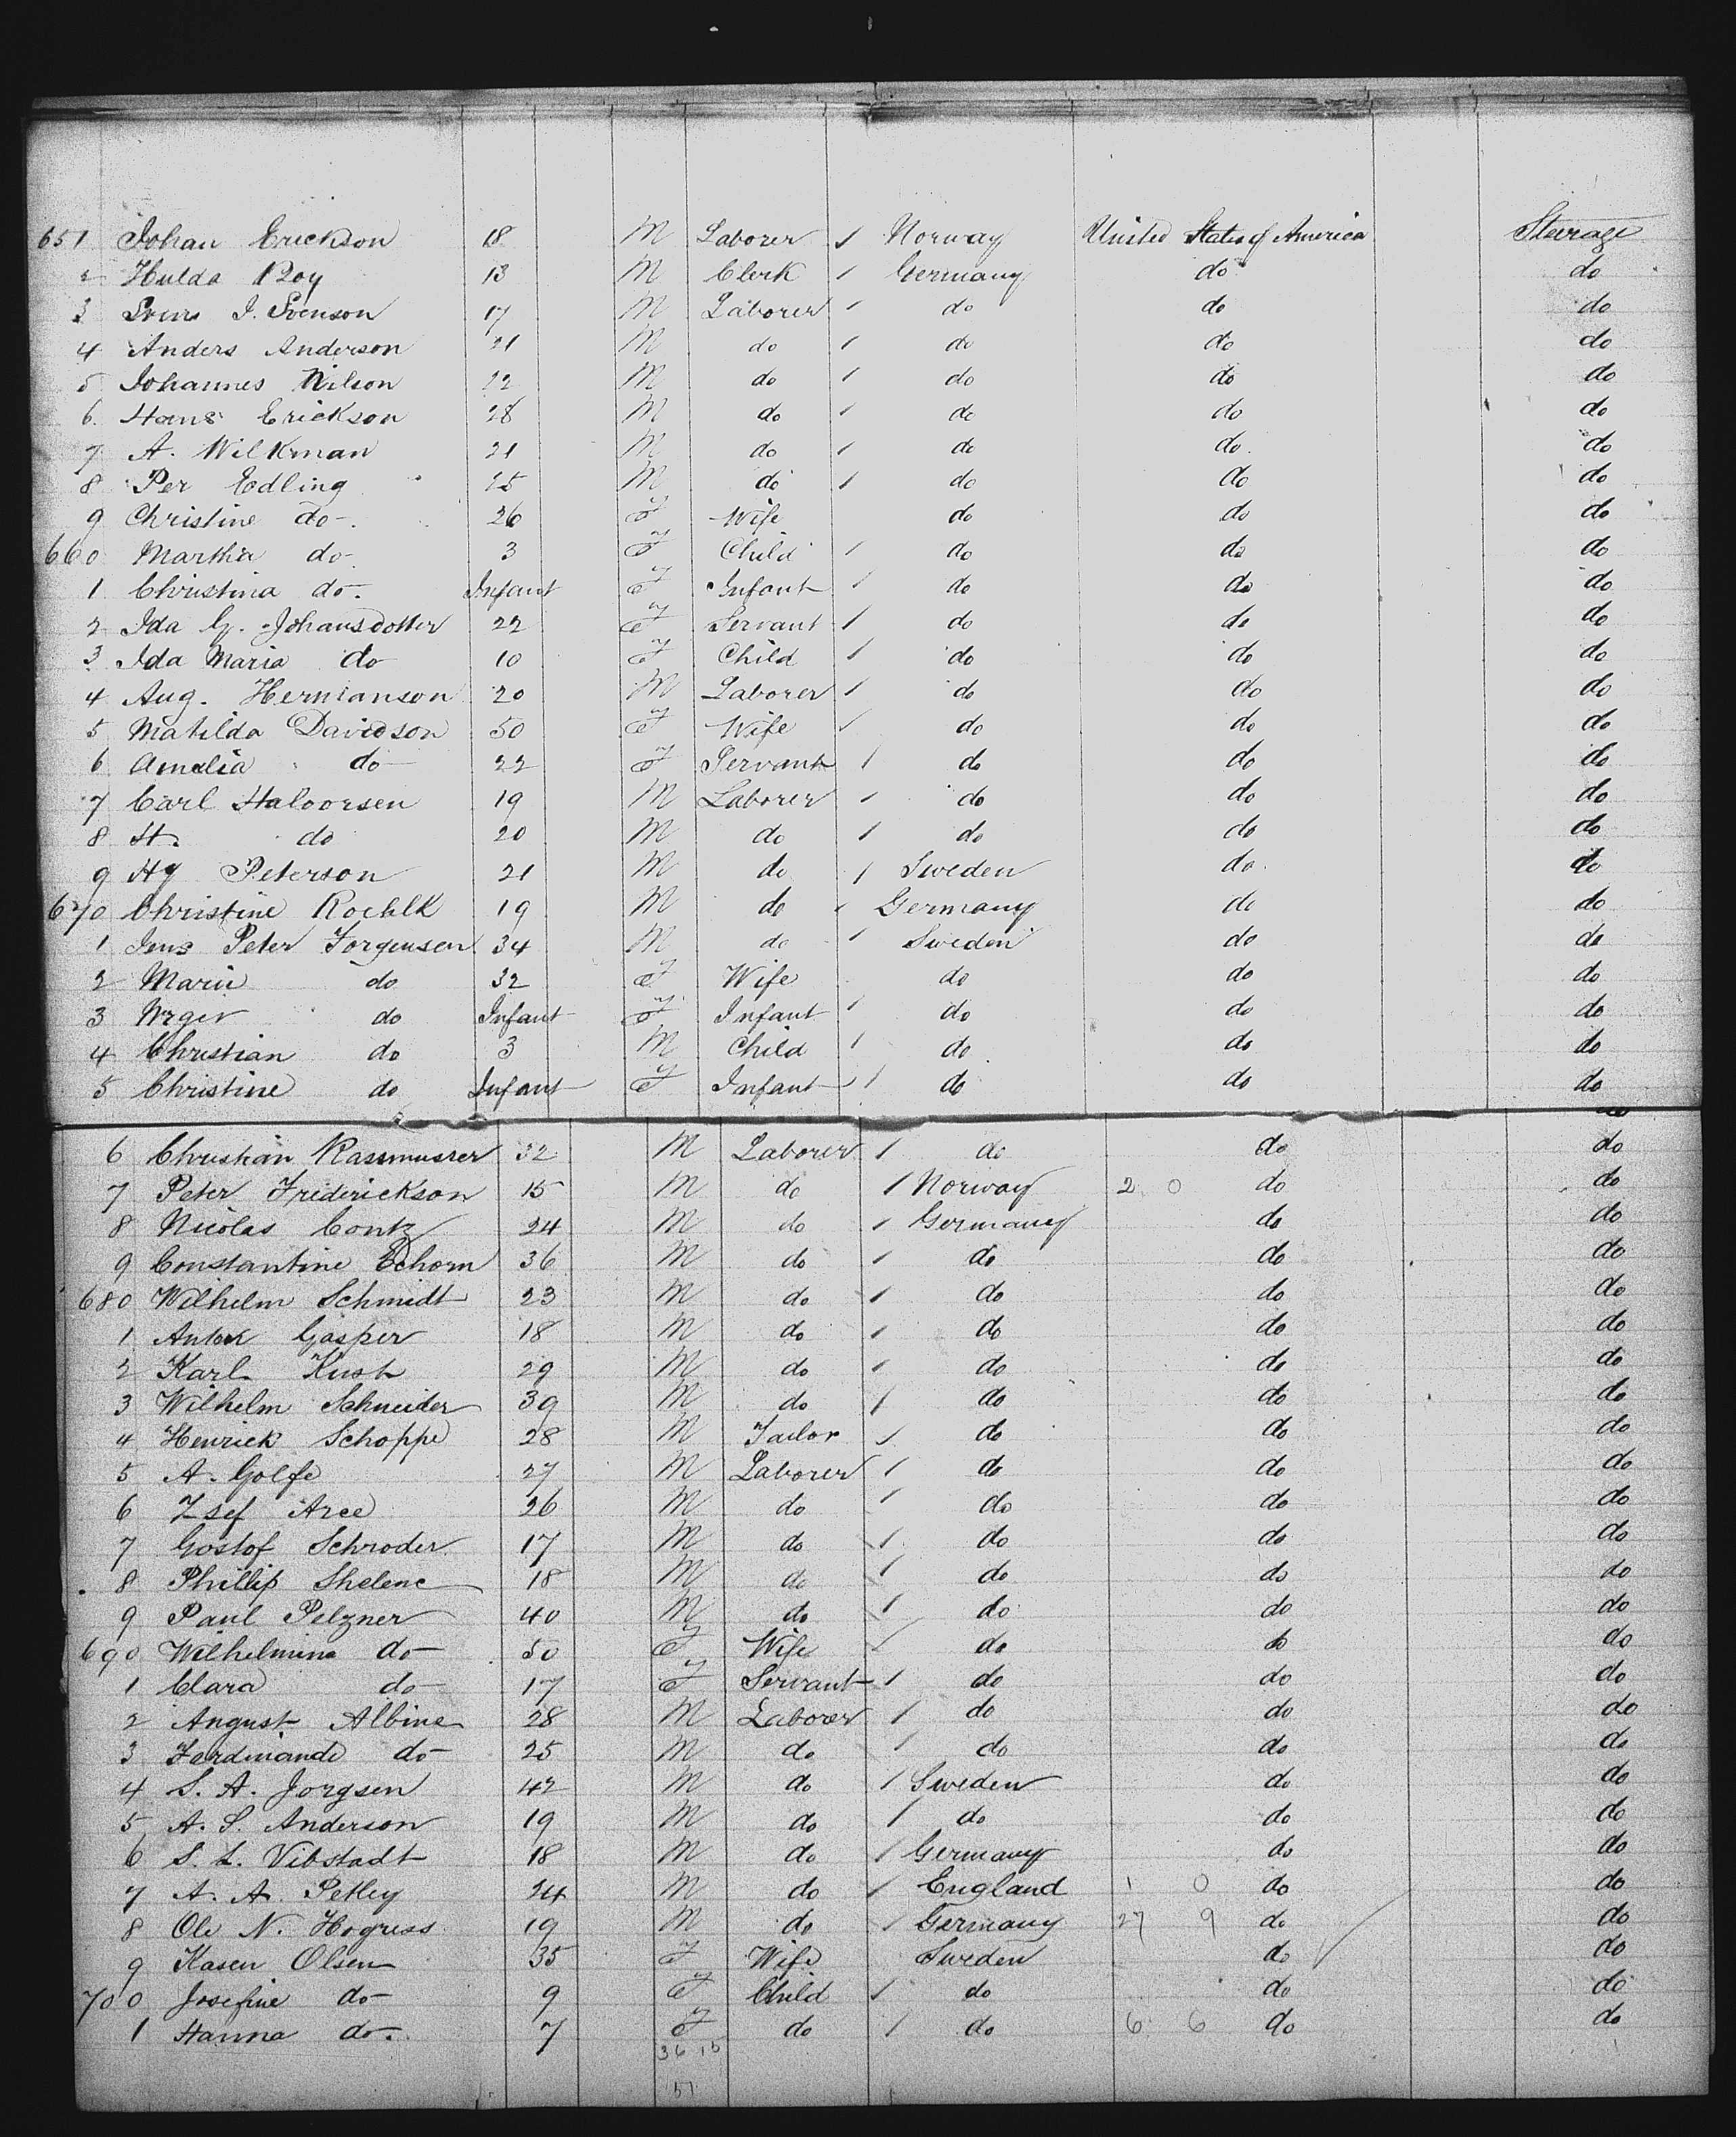 651 Johan Erickson 18 M Laborer / Norway United States of America Steerage
2 Hulda Roy 13 M Clerk / Germany do do
3 J. Svenson 17 M Laborer / do do do
4 Anders Anderson 21 M do / do do do
5 Johannes Nilson 22 M do / do do do
6 Hans Erickson 28 M do / do do do
7 A. Wilkman 21 M do / do do do
8 Per Edling 25 M do / do do do
9 Christine do 26 F Wife do do do
660 Martha do 3 F Child / do do do
1 Christina do Infant F Infant / do do do
2 Ida G. Johansdotter 22 F Servant / do do do
3 Ida Maria do 10 F Child / do do do
4 Aug. Hermanson 20 M Laborer / do do do
5 Matilda Davidson 50 F Wife / do do do
6 Amalia do 22 F Servant / do do do
7 Carl Halvorsen 19 M Laborer / do do do
8 H. do 20 M do / do do do
9 Hy Peterson 21 M do / Sweden do do
670 Christine Roehlk 19 M do / Germany do do
1 Jens Peter Jorgensen 34 M do / Sweden do do
2 Marie do 32 F Wife do do do
3 do Infant F Infant / do do do
4 Christian do 3 M Child / do do do
5 Christine do Infant F Infant / do do do
6 Christian Rassmusser 32 M Laborer / do do do
7 Peter Friderickson 15 M do / Norway 2 0 do do
8 Nicolas Contz 24 M do / Germany do do
9 Constantine Echorn 36 M do / do do do
680 Wilhelm Schmidt 23 M do / do do do
1 Anton Gasper 18 M do / do do do
2 Karl Kust 29 M do / do do do
3 Wilhelm Schneider 39 M do / do do do
4 Henrick Schoppe 28 M Tailor / do do do
5 A. Golfe 27 M Laborer / do do do
6 Zsef Aree 26 M do / do do do
7 Gostof Schroder 17 M do / do do do
8 Phillip Shelene 18 M do / do do do
9 Paul Pelzner 40 M do / do do do
690 Wilhelmina do 50 F Wife / do do do
1 Clara do 17 F Servant / do do do
2 August Albine 28 M Laborer / do do do
3 Ferdinande do 25 M do / do do do
4 S. A. Jorgsen 42 M do / Sweden do do
5 A. S. Anderson 19 M do / do do do
6 S. L. Vibstadt 18 M do / Germany do do
7 A. A. Petley 24 M do / England 1 0 do do
8 Ole N. Hogress 19 M do / Germany 27 9 do do
9 Kasen Olsen 35 F Wife Sweden do do
700 Josefine do 9 F Child / do do do
1 Hanna do 7 F do / do 6 6 do do
36 15
51